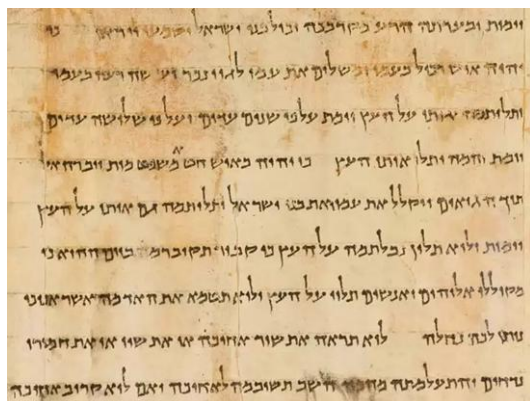 וימות ובערתה הרע מקרבכה וכול בני ישראל ישמעו ויראו כי
יהיה איש רכיל בעמו ומשלים את עמו לגוי נכר ועשה רעה בעמו
ותליתמה אותו על העץ וימת על פי שנים עדים ועל פי שלושה עדים
יומת והמה יתלו אותו העץ כי יהיה באיש חטא משפט מות ויברח אל
תוך הגואים ויקלל את עמו ואת בני ישראל ותליתמה גם אותו על העץ
וימות ולוא תלין נבלתמה על העץ כי קבור תקוברמה ביום ההוא כי
מקוללי אלוהים ואנשים תלוי על העץ ולוא תטמא את האדמה אשר אנוכי
נותן לכה נחלה לוא תראה את שור אחיכה או את שיו או את חמורו
נדחים והתעלמתה מהמה השב תשיבמה לאחיכה ואם לוא קרוב אחיכה